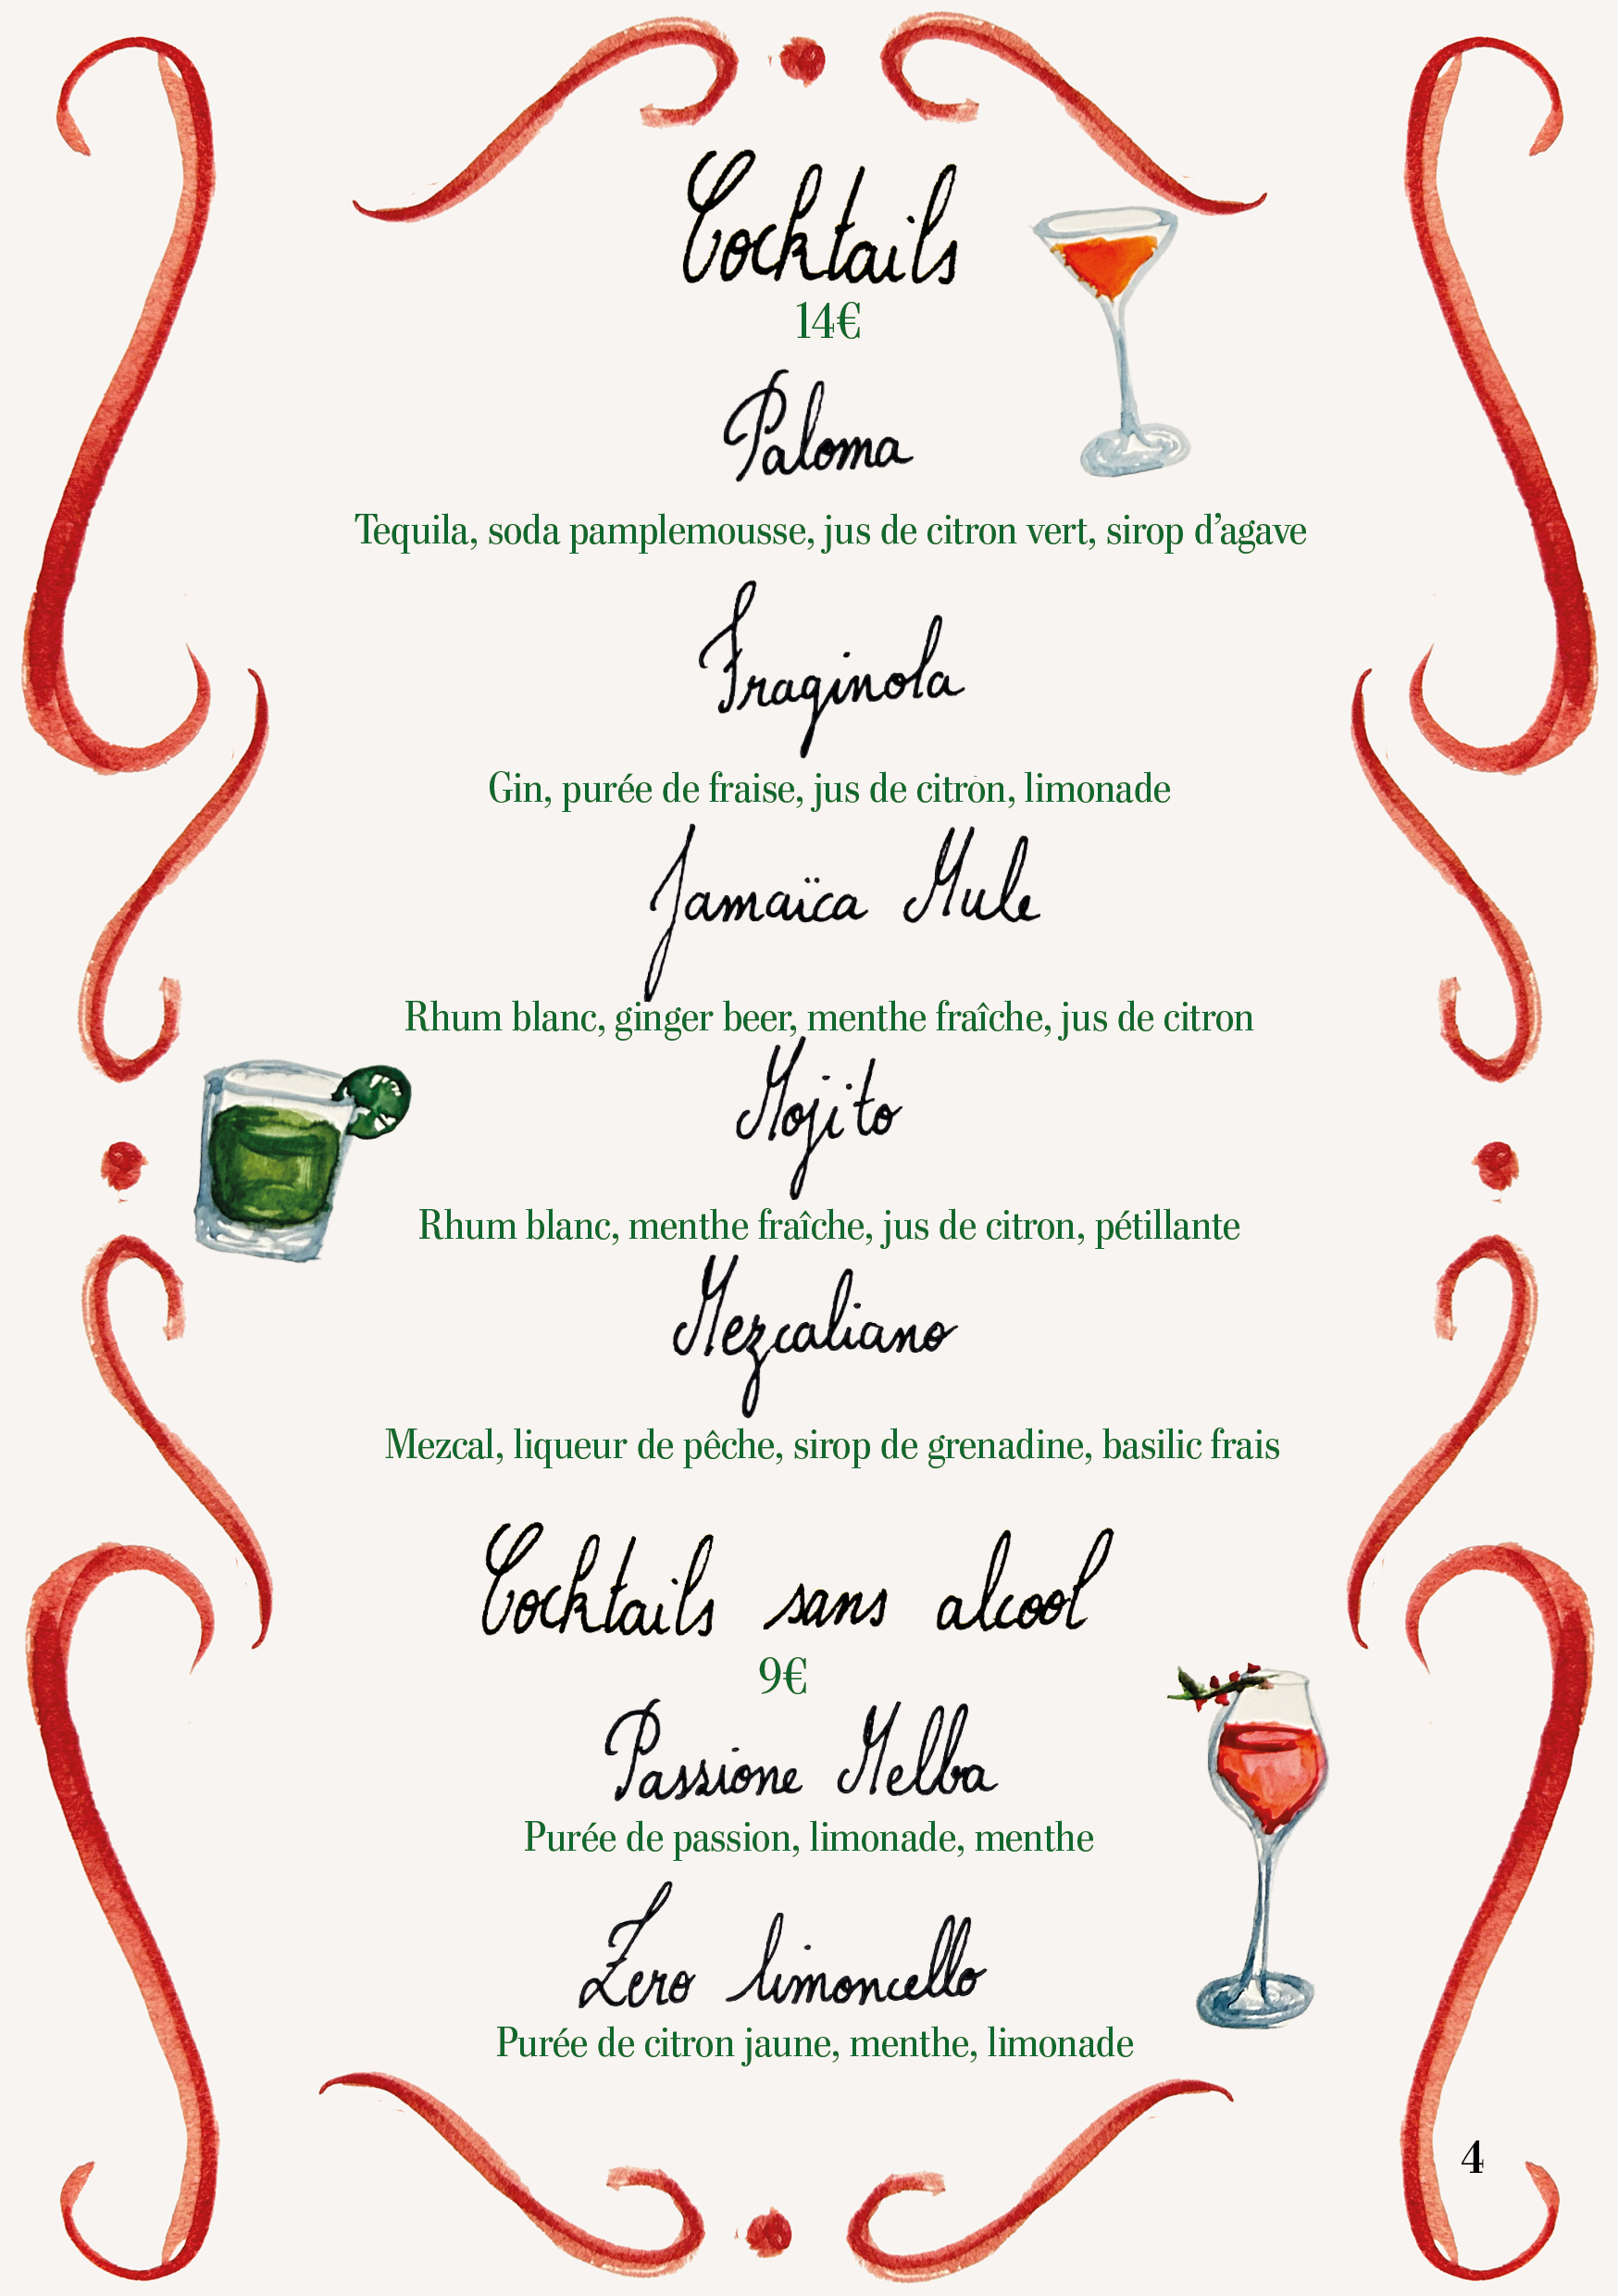 Cocktails
14€
Paloma
Tequila, soda pamplemousse, jus de citron vert, sirop d’agave
Fraginola
Gin, purée de fraise, jus de citron, limonade
Jamaïca Mule
Rhum blanc, ginger beer, menthe fraîche, jus de citron
Mojito
Rhum blanc, menthe fraîche, jus de citron, pétillante
Mezcaliano
Mezcal, liqueur de pêche, sirop de grenadine, basilic frais
Cocktails sans alcool
9€
Passione Melba
Purée de passion, limonade, menthe
Zero limoncello
Purée de citron jaune, menthe, limonade
4